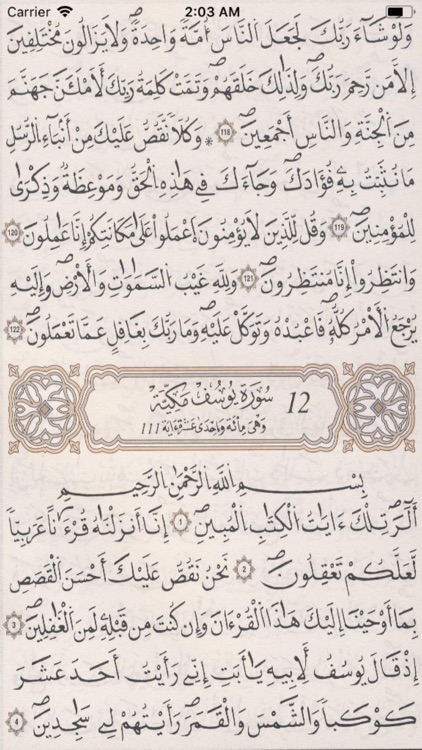 Carrier 2:03 AM
وَلَوْ شَآءَ رَبُّكَ لَجَعَلَ اَ۬لنَّاسَ أُمَّةٗ وَٰحِدَةٗۖ وَلَا يَزَالُونَ مُخْتَلِفِينَ
إِلَّا مَن رَّحِمَ رَبُّكَۖ وَلِذَٰلِكَ خَلَقَهُمْۖ وَتَمَّتْ كَلِمَةُ رَبِّكَ لَأَمْلَأَنَّ جَهَنَّمَ
مِنَ اَ۬لْجِنَّةِ وَالنَّاسِ أَجْمَعِينَۖ 118 * وَكُلّاٗ نَّقُصُّ عَلَيْكَ مِنْ أَنۢبَآءِ اِ۬لرُّسُلِ
مَا نُثَبِّتُ بِهِۦ فُؤَادَكَۖ وَجَآءَكَ فِي هَٰذِهِ اِ۬لْحَقُّ وَمَوْعِظَةٞ وَذِكْر۪ىٰ
لِلْمُؤْمِنِينَۖ 119 وَقُل لِّلذِينَ لَا يُؤْمِنُونَ اَ۪عْمَلُواْ عَلَىٰ مَكَانَتِكُمُۥٓ إِنَّا عَٰمِلُونَ 120
وَانتَظِرُوٓاْ إِنَّا مُنتَظِرُونَۖ 121 وَلِلهِ غَيْبُ اُ۬لسَّمَٰوَٰتِ وَالَارْضِۖ وَإِلَيْهِ
يَرْجِعُ اُ۬لَامْرُ كُلُّهُۥۖ فَاعْبُدْهُ وَتَوَكَّلْ عَلَيْهِۖ وَمَا رَبُّكَ بِغَٰفِلٍ عَمَّا تَعْمَلُونَۖ 122
12 سُورَةُ يُوسُفَ مَكِّيَّة
وَهِيَ مِائَة وَاحْدَىٰ عَشْرَةَ ءَايَة 111
بِسْمِ اِ۬للَّهِ اِ۬لرَّحْمَٰنِ اِ۬لرَّحِيمِ
أَلَٓرۖ تِلْكَ ءَايَٰتُ اُ۬لْكِتَٰبِ اِ۬لْمُبِينِۖ 1 إِنَّآ أَنزَلْنَٰهُ قُرْءَٰناً عَرَبِيّاٗ
لَّعَلَّكُمْ تَعْقِلُونَۖ 2 نَحْنُ نَقُصُّ عَلَيْكَ أَحْسَنَ اَ۬لْقَصَصِ
بِمَآ أَوْحَيْنَآ إِلَيْكَ هَٰذَا اَ۬لْقُرْءَانَ وَإِن كُنتَ مِن قَبْلِهِۦ لَمِنَ اَ۬لْغَٰفِلِينَۖ 3
إِذْ قَالَ يُوسُفُ لِأَبِيهِ يَٰٓأَبَتِ إِنِّي رَأَيْتُ أَحَدَ عَشَرَ
كَوْكَباٗ وَالشَّمْسَ وَالْقَمَرَ رَأَيْتُهُمْ لِي سَٰجِدِينَۖ 4